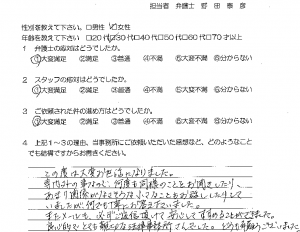 担当者 弁護士 野田 泰彦
性別を教えて下さい。 □男性 ☑女性
年齢を教えて下さい □20代☑30代□40代□50代□60代□70才以上
1 弁護士の応対はどうでしたか。
①大変満足 ②満足 ③普通 ④不満 ⑤大変不満 ⑥分からない
2 スタッフの応対はどうでしたか。
①大変満足 ②満足 ③普通 ④不満 ⑤大変不満 ⑥分からない
3 ご依頼された件の進め方はどうでしたか。
①大変満足 ②満足 ③普通 ④不満 ⑤大変不満 ⑥分からない
4 上記1～3の理由、当事務所にご依頼いただいた感想など、どのようなこと
でも結構ですからお書きください。
この度は大変お世話になりました。
何度も同様のことをお聞きしたり、
あまり関係のなさそうなことをお話ししたりして
いましたが、何でも丁寧にお答え下さいました。
またメールも、必ずご返信頂けて安心してすすめることができました。
良心的でとても親切な法律事務所さんでした。